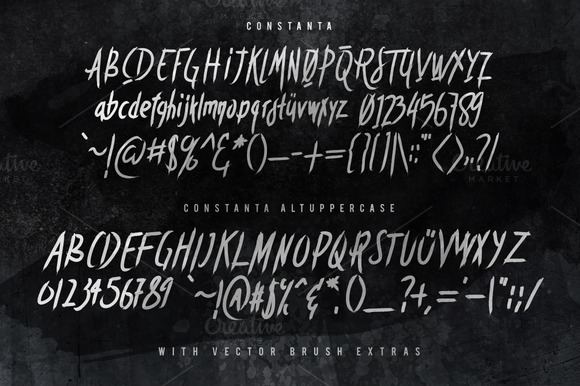 CONSTANTA
ABCDEFGHiJKLMNØPQRSTUVWXYZ
abcdefghijklmnopqrstüvwxyz Ø123456789
`~!@#$%^&*()_-+={}[]|\:;"'<>,.?/
CONSTANTA ALTUPPERCASE
ABCDEFGHIJKLMNOPQRSTUÜVWXYZ
0123456789 `~!@#$%^&*.()_?+,=·-|":;/
WITH VECTOR BRUSH EXTRAS
Creative
MARKET
Creative